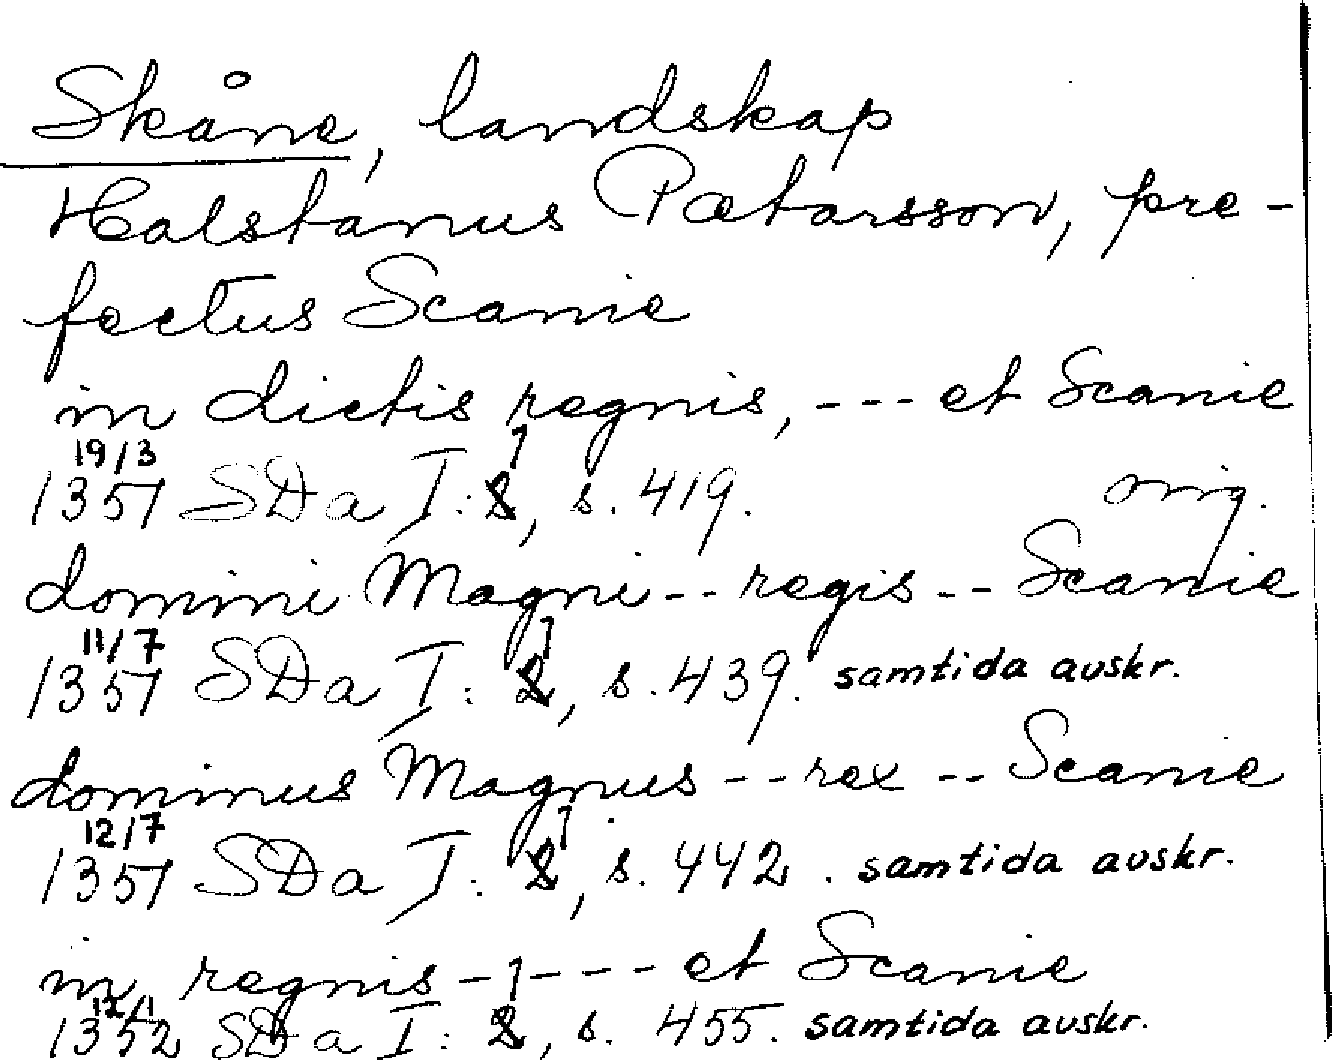 Skåne, landskap
Halstanus Pætarsson, pre-
fectus Scanie
in dictis regnis, --- et Scanie
19/3
1351 SDa I:1, s. 419. orig.
domini Magni -- regis -- Scanie
11/7
1351 SDa I:1, s. 439. samtida avskr.
dominus Magnus -- rex -- Scanie
12/7
1351 SDa I:1, s. 442. samtida avskr.
in regnis ----- et Scanie
12/1
1352 SDa I:1, s. 455. samtida avskr.